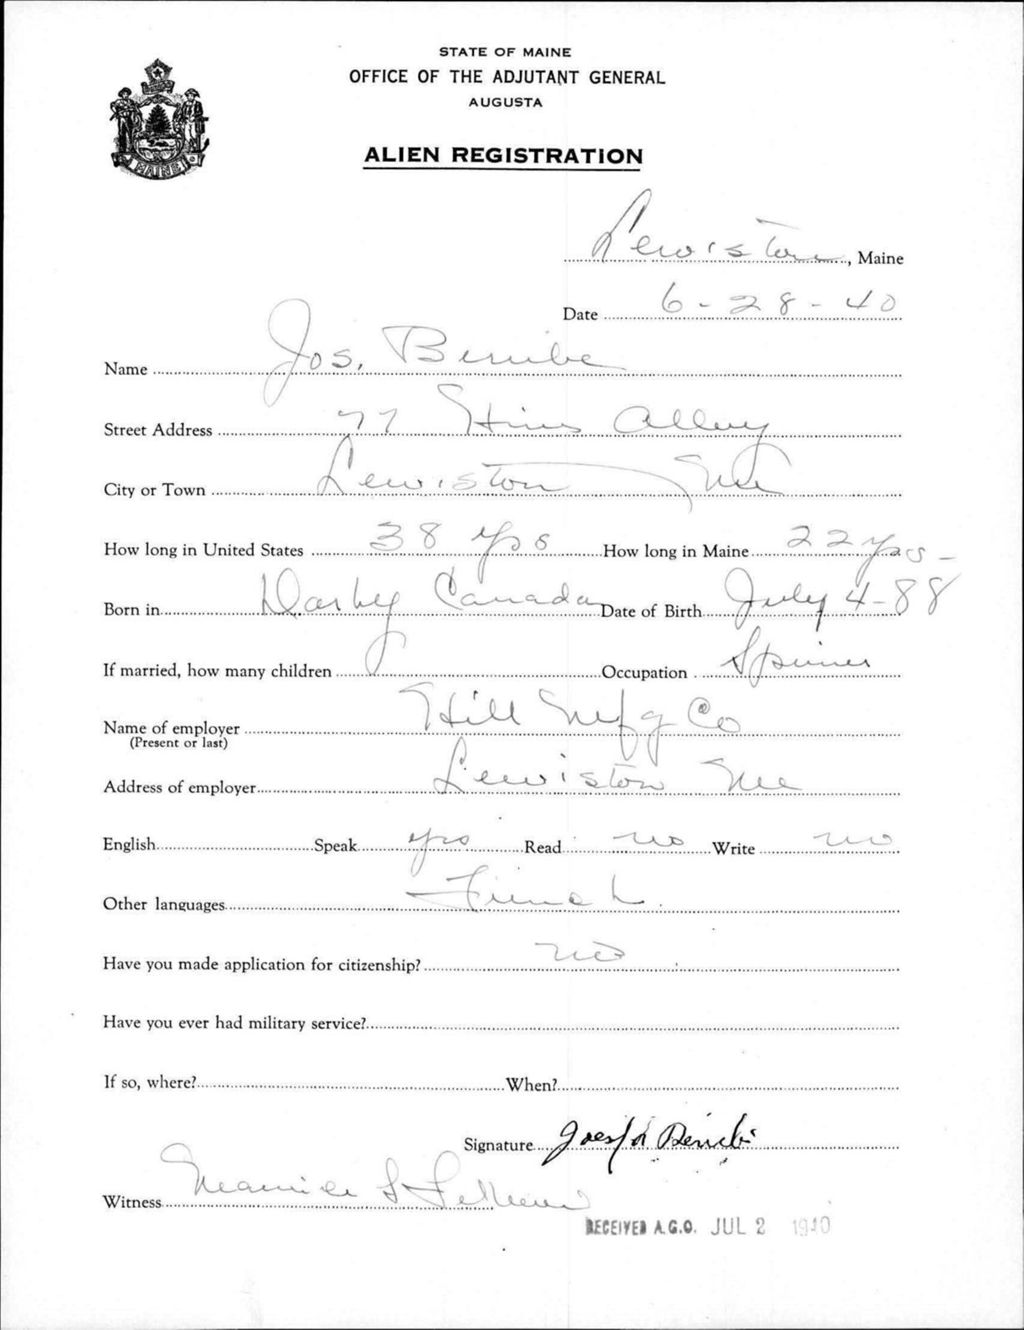 STATE OF MAINE
OFFICE OF THE ADJUTANT GENERAL
AUGUSTA
MAINE
ALIEN REGISTRATION
Lewiston, Maine
Date 6-28-40
Name Jos. Berube
Street Address 77 Hines Alley
City or Town Lewiston Me
How long in United States 38 yrs How long in Maine 22 yrs-
Born in Canada Date of Birth July 4-88
If married, how many children Occupation Spinner
Name of employer Hill Mfg Co
(Present or last)
Address of employer Lewiston Me
English Speak yes Read no Write no
Other languages French.
Have you made application for citizenship? no
Have you ever had military service?
If so, where? When?
Signature
Witness
RECEIVED A.G.O. JUL 2 1940